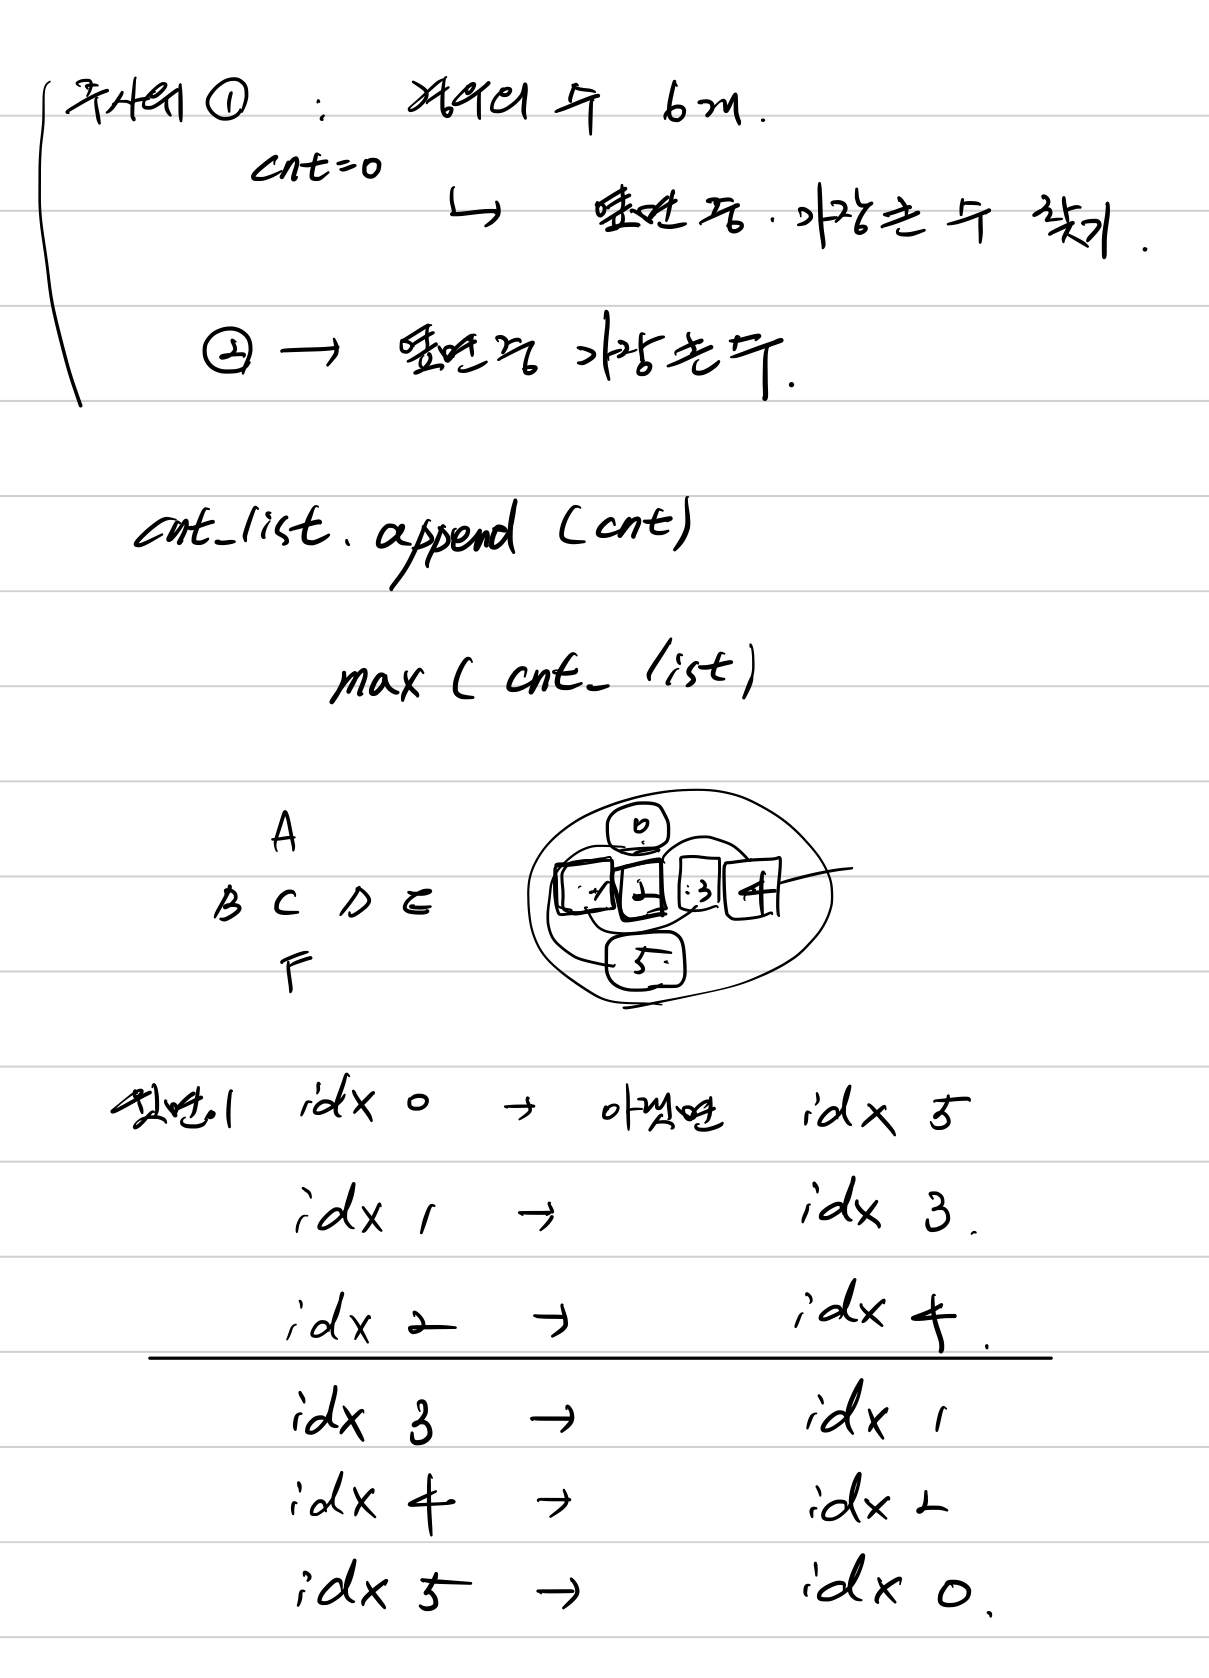 주사위 ① : 경우의 수 6개.
cnt=0
↳ 옆면 중. 가장 큰 수 찾기.
② → 옆면 중 가장 큰 수.
cnt_list. append (cnt)
max ( cnt_ list)
A
B C D E
F
0
1 2 3 4
5
윗면이 idx 0 → 아랫면 idx 5
idx 1 → idx 3.
idx 2 → idx 4.
idx 3 → idx 1
idx 4 → idx 2
idx 5 → idx 0.